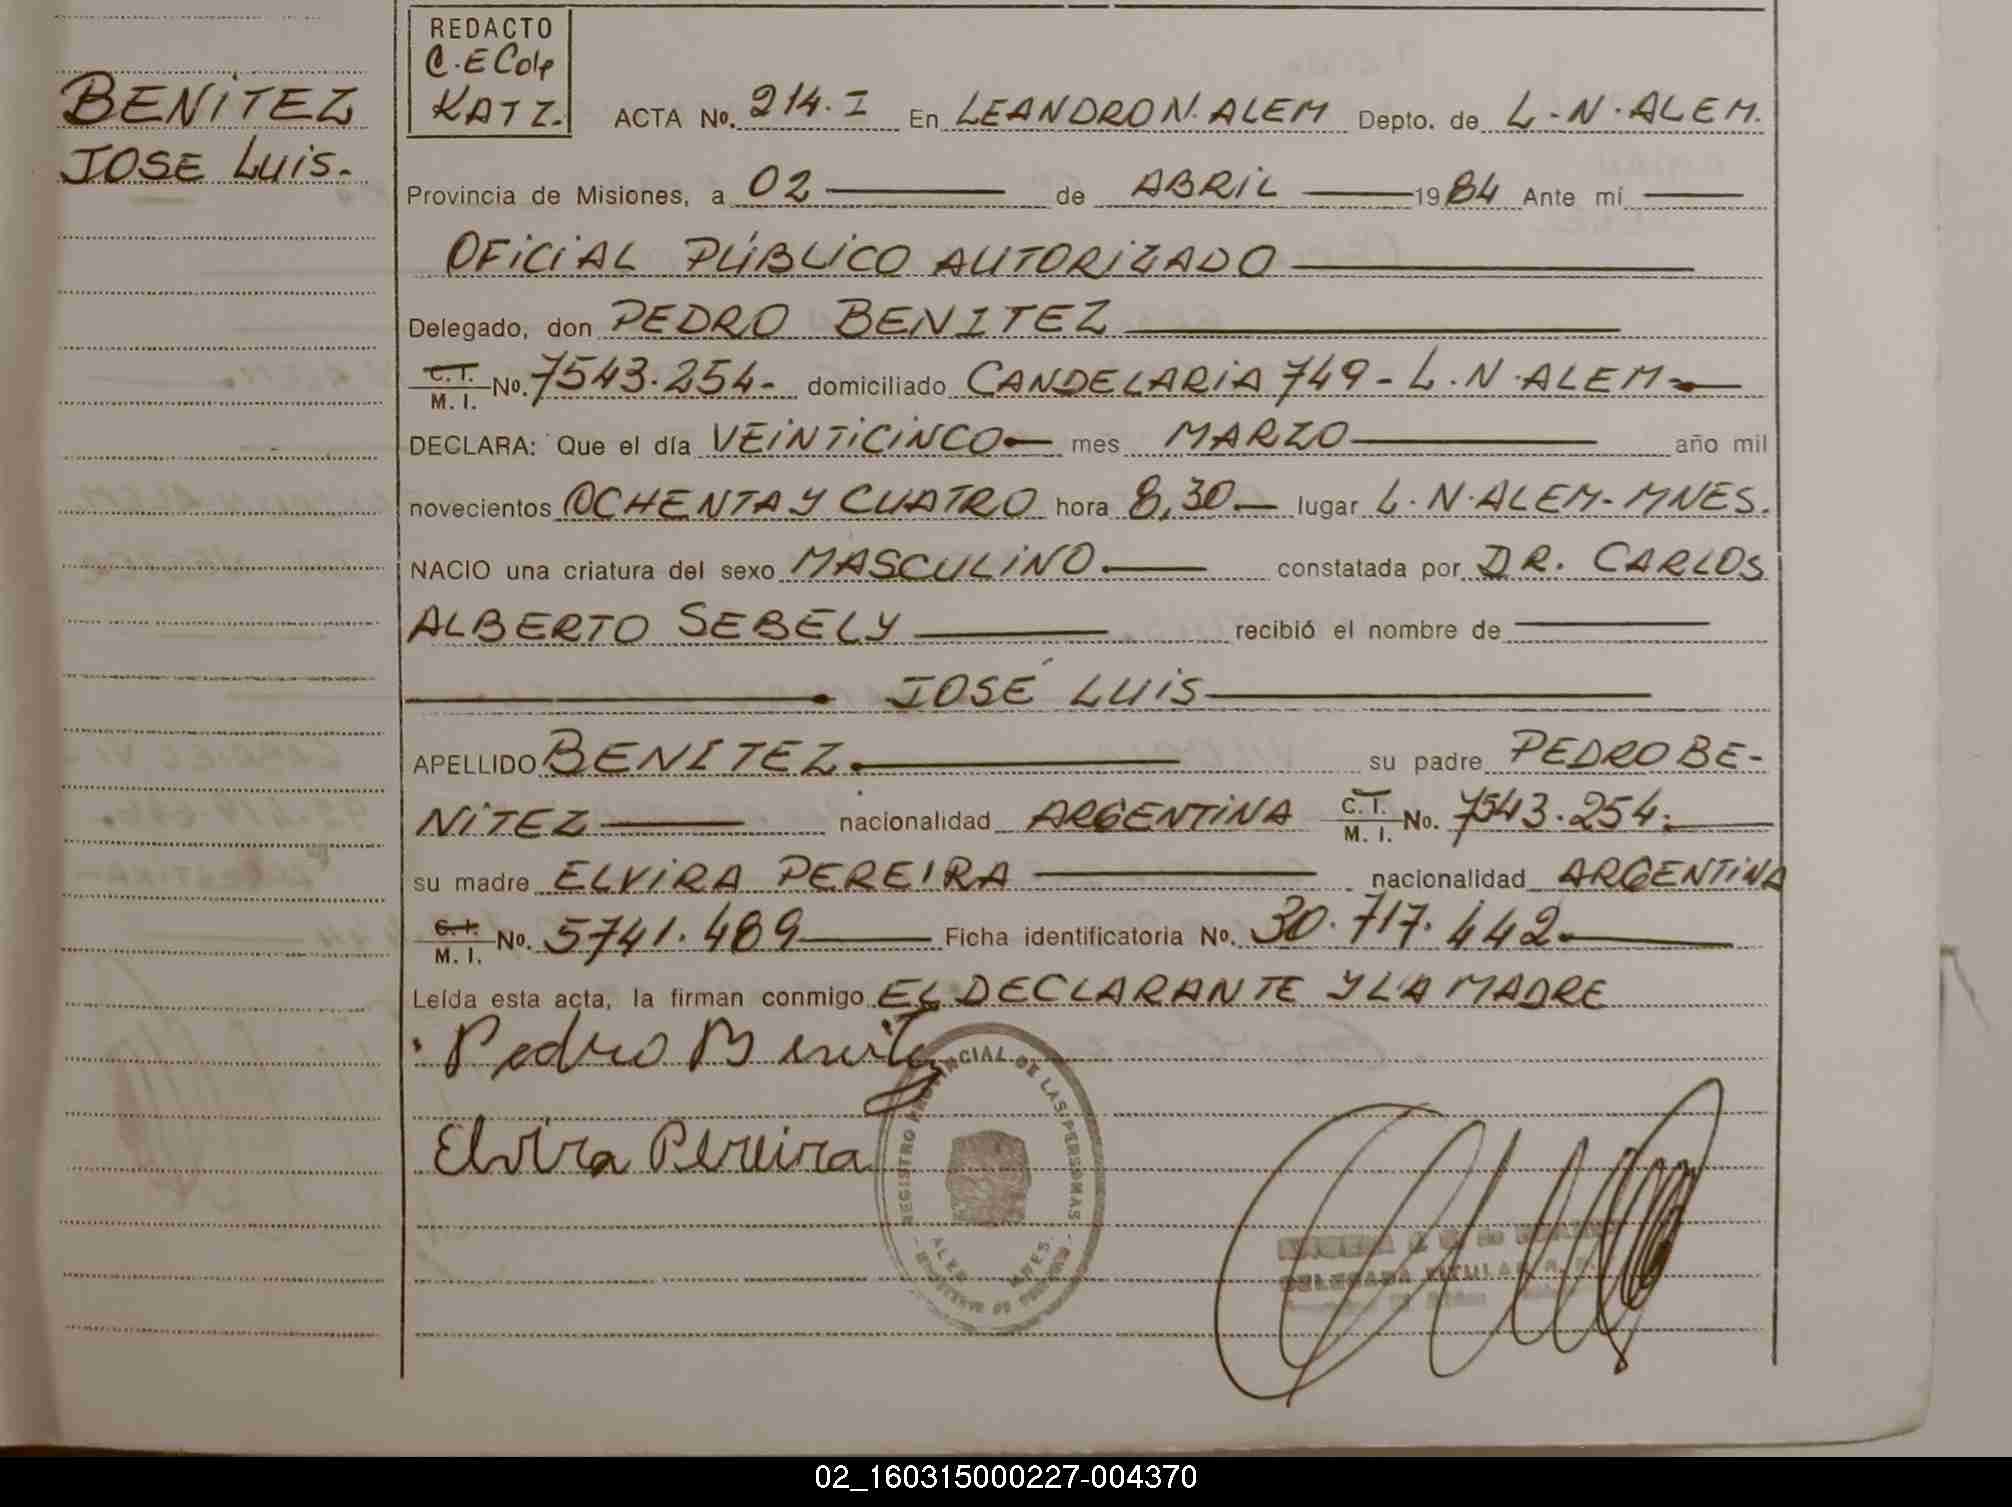 BENITEZ
JOSE LUIS.
REDACTO
C.E Cole
KATZ.
ACTA No. 214.I En LEANDRO N. ALEM Depto. de L.N.ALEM.
Provincia de Misiones, a 02 de ABRIL 1984 Ante mí
OFICIAL PÚBLICO AUTORIZADO
Delegado, don PEDRO BENITEZ
C.T. M. I. No. 7543.254- domiciliado CANDELARIA 749 - L.N.ALEM-
DECLARA: Que el día VEINTICINCO mes MARZO año mil
novecientos OCHENTA Y CUATRO hora 8,30 lugar L.N.ALEM-MNES.
NACIO una criatura del sexo MASCULINO. constatada por DR. CARLOS
ALBERTO SEBELY recibió el nombre de
JOSÉ LUIS
APELLIDO BENITEZ. su padre PEDRO BE-
NITEZ nacionalidad ARGENTINA C.T. M. I. No. 7543.254.
su madre ELVIRA PEREIRA nacionalidad ARGENTINA
C.I. M. I. No. 5741.489 Ficha identificatoria No. 30.717.442.
Leída esta acta, la firman conmigo EL DECLARANTE Y LA MADRE
Pedro Benitez
Elvira Pereira
REGISTRO PROVINCIAL DE LAS PERSONAS
ALEM MNES
02_160315000227-004370